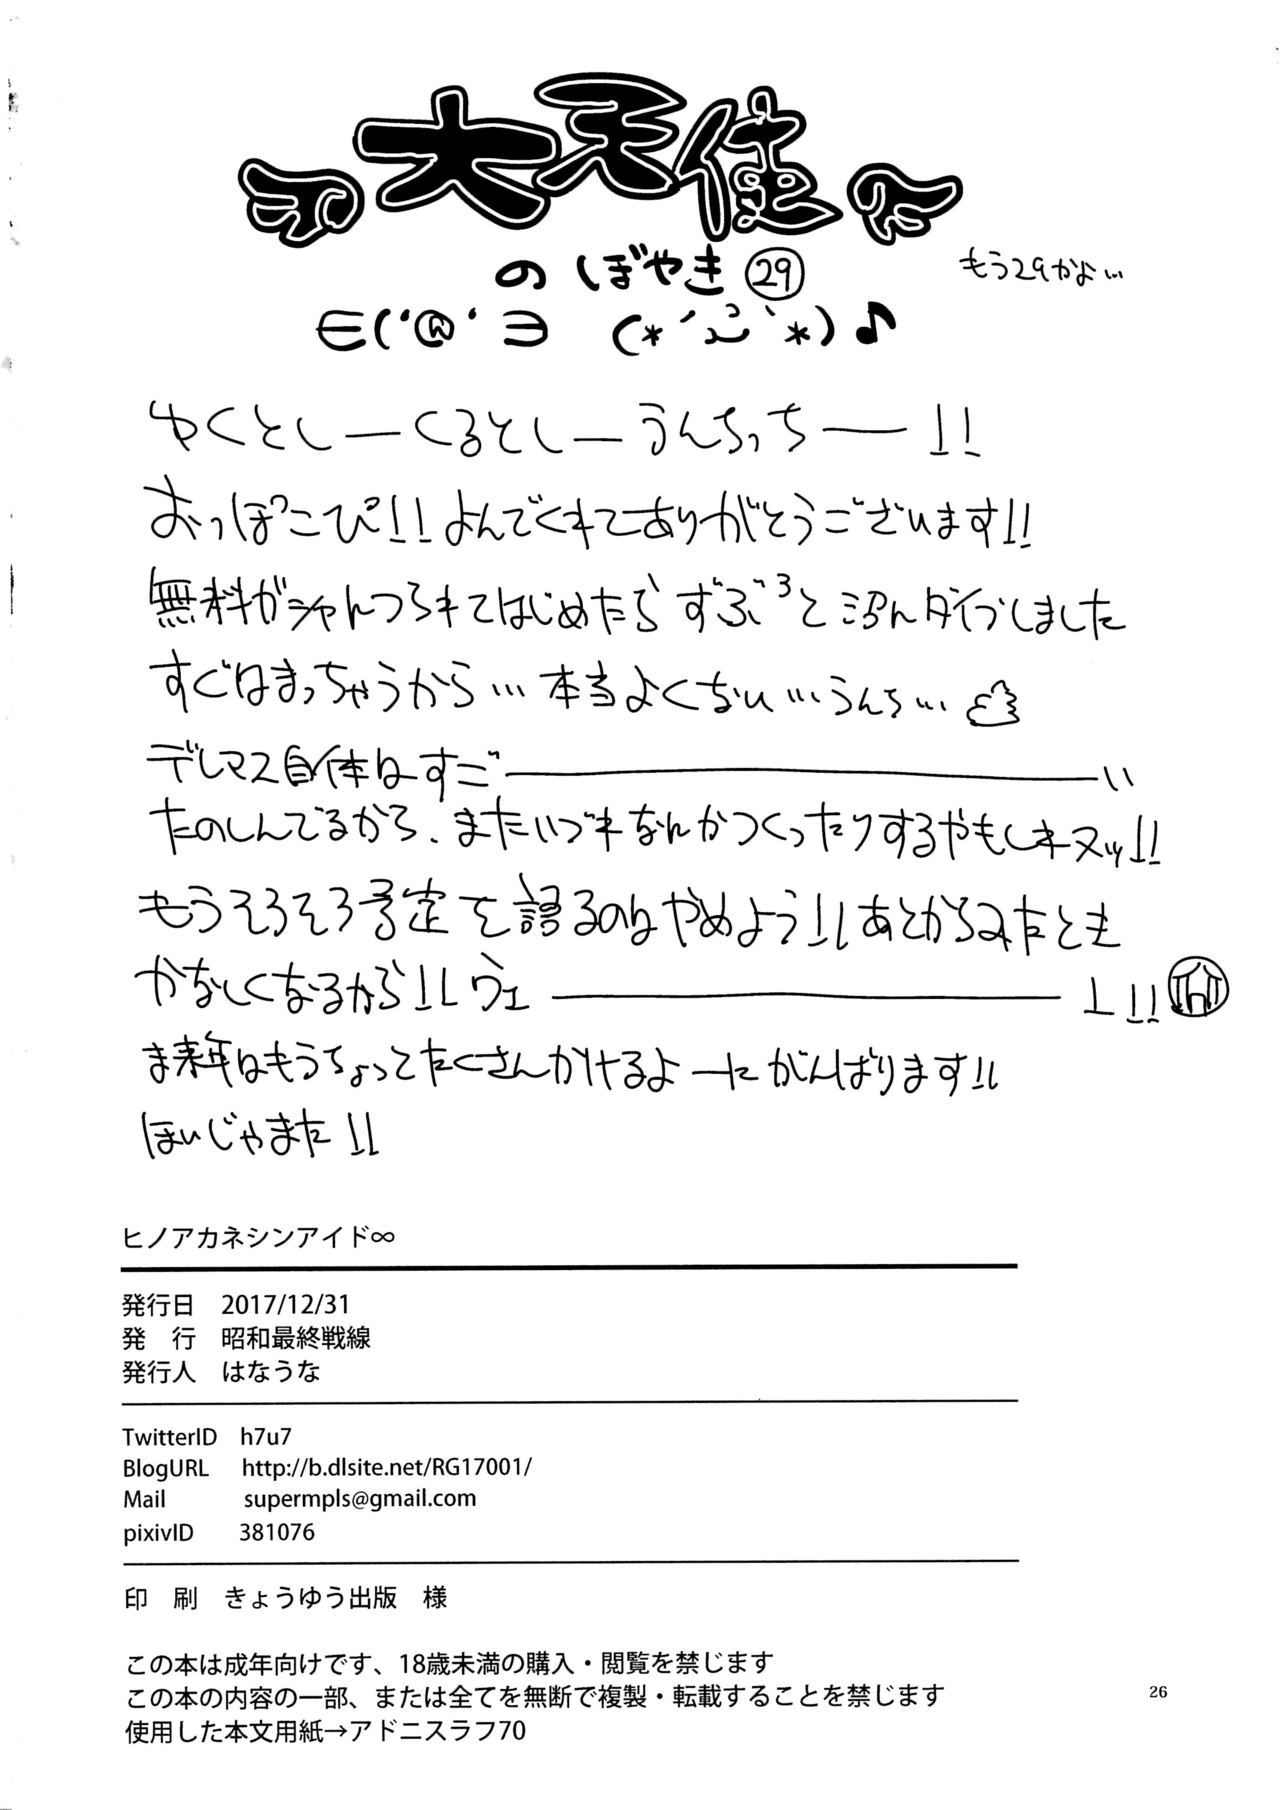 大天使
のぼやき 29
もう29かよ…
∈('@'∋ (*´ω`*)♪
ゆくとしーくるとしーうんちっちー!!
おっぽこぴ!!よんでくれてありがとうございます!!
無料ガシャんつられてはじめたらずぶ³と沼んダイブしました
すぐはまっちゃうから…本当よくない…うんち…
デレマス自体はすご――い
たのしんでるから、またいづれなんかつくったりするやもしれヌッ!!
もうそろそろ予定を語るのはやめよう!!あとからみたとき
かなしくなるから!!ヴェ――!!!
ま来年はもうちょっとたくさんかけるよーにがんばります!!
ほいじゃまた!!
ヒノアカネシンアイド∞
発行日 2017/12/31
発 行 昭和最終戦線
発行人 はなうな
TwitterID h7u7
BlogURL http://b.dlsite.net/RG17001/
Mail supermpls@gmail.com
pixivID 381076
印 刷 きょうゆう出版 様
この本は成年向けです、18歳未満の購入・閲覧を禁じます
この本の内容の一部、または全てを無断で複製・転載することを禁じます
使用した本文用紙→アドニスラフ70
26